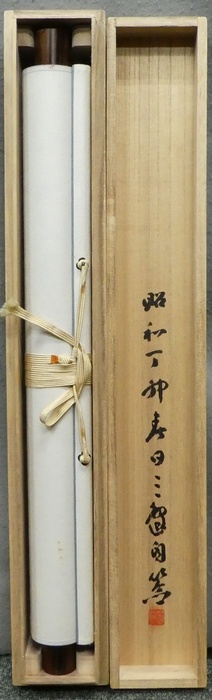 昭和丁卯春日三蘆自簽